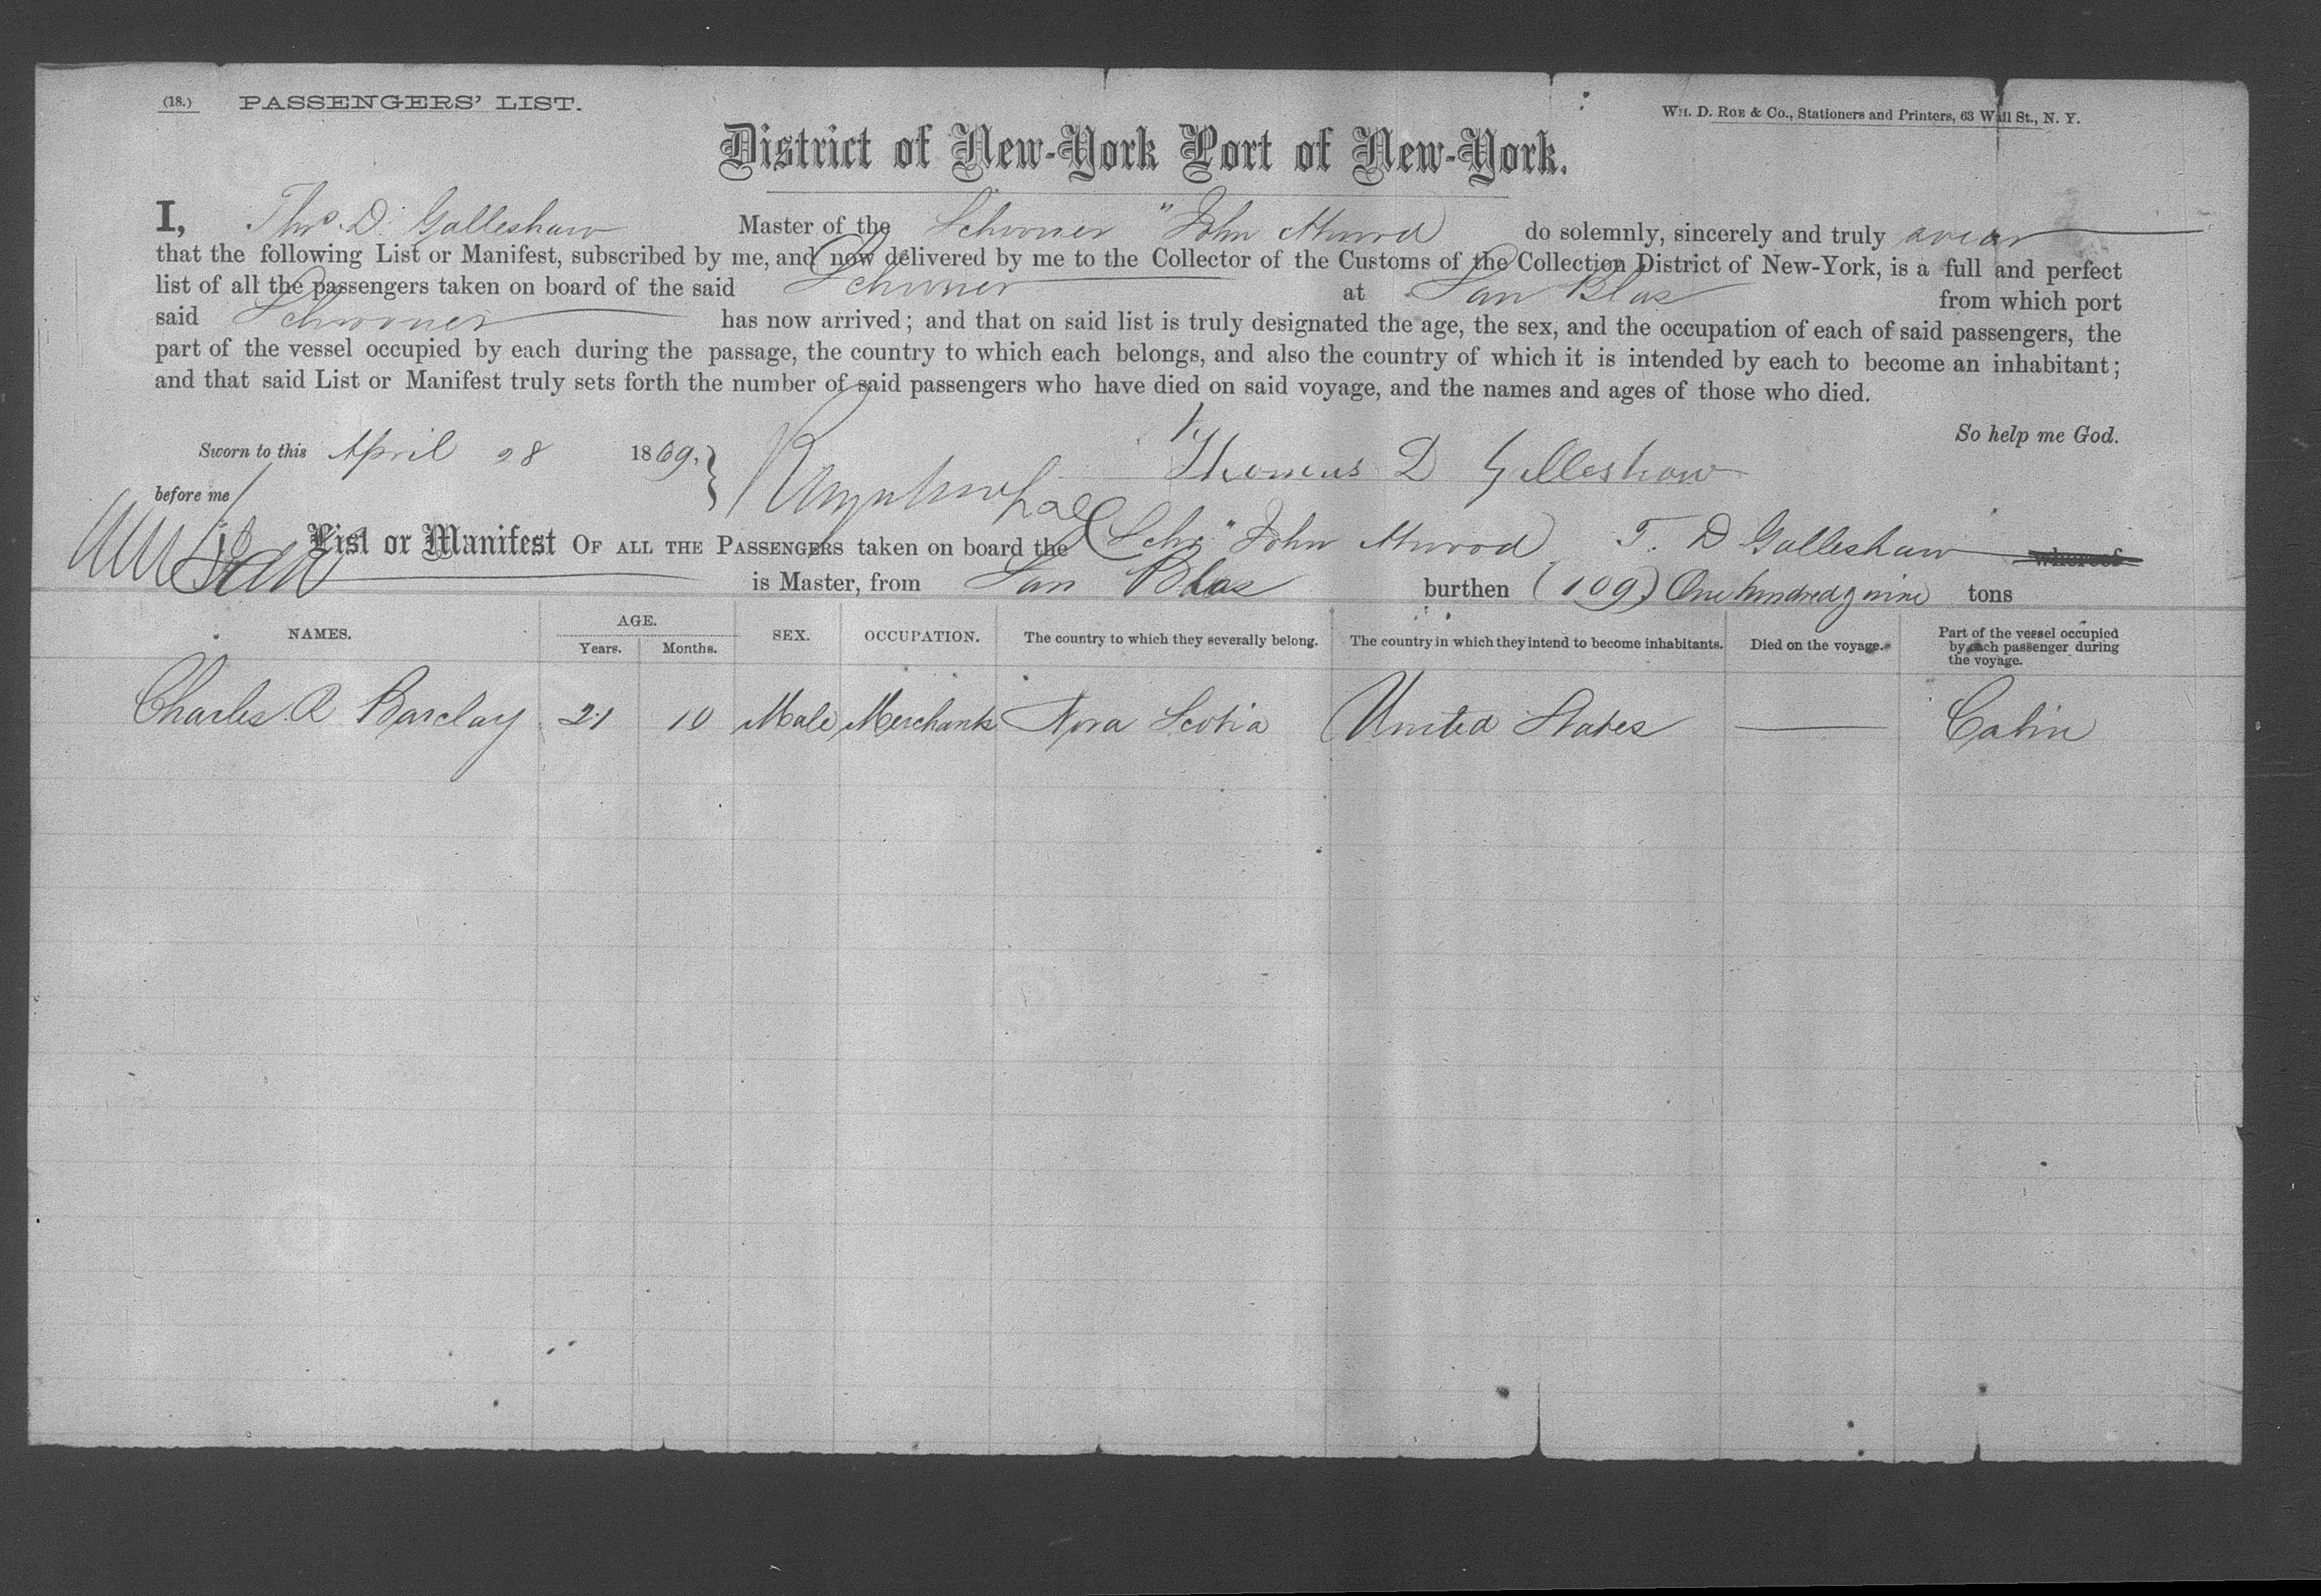 (18.) PASSENGERS' LIST.
Wm. D. Roe & Co., Stationers and Printers, 63 Wall St., N. Y.
District of New-York Port of New-York.
I, Thos. D. Galleshaw Master of the Schooner "John Atwood do solemnly, sincerely and truly swear
that the following List or Manifest, subscribed by me, and now delivered by me to the Collector of the Customs of the Collection District of New-York, is a full and perfect
list of all the passengers taken on board of the said Schooner at San Blas from which port
said Schooner has now arrived; and that on said list is truly designated the age, the sex, and the occupation of each of said passengers, the
part of the vessel occupied by each during the passage, the country to which each belongs, and also the country of which it is intended by each to become an inhabitant;
and that said List or Manifest truly sets forth the number of said passengers who have died on said voyage, and the names and ages of those who died.
So help me God.
Sworn to this April 28 1869. Thomas D Galleshaw
before me
List or Manifest OF ALL THE PASSENGERS taken on board the Schr "John Atwood T. D Galleshaw whereof
is Master, from San Blas burthen (109) One hundred & nine tons
NAMES. AGE. Years. Months. SEX. OCCUPATION. The country to which they severally belong. The country in which they intend to become inhabitants. Died on the voyage. Part of the vessel occupied by each passenger during the voyage.
Charles R Barclay 21 10 Male Merchant Nova Scotia United States — Cabin